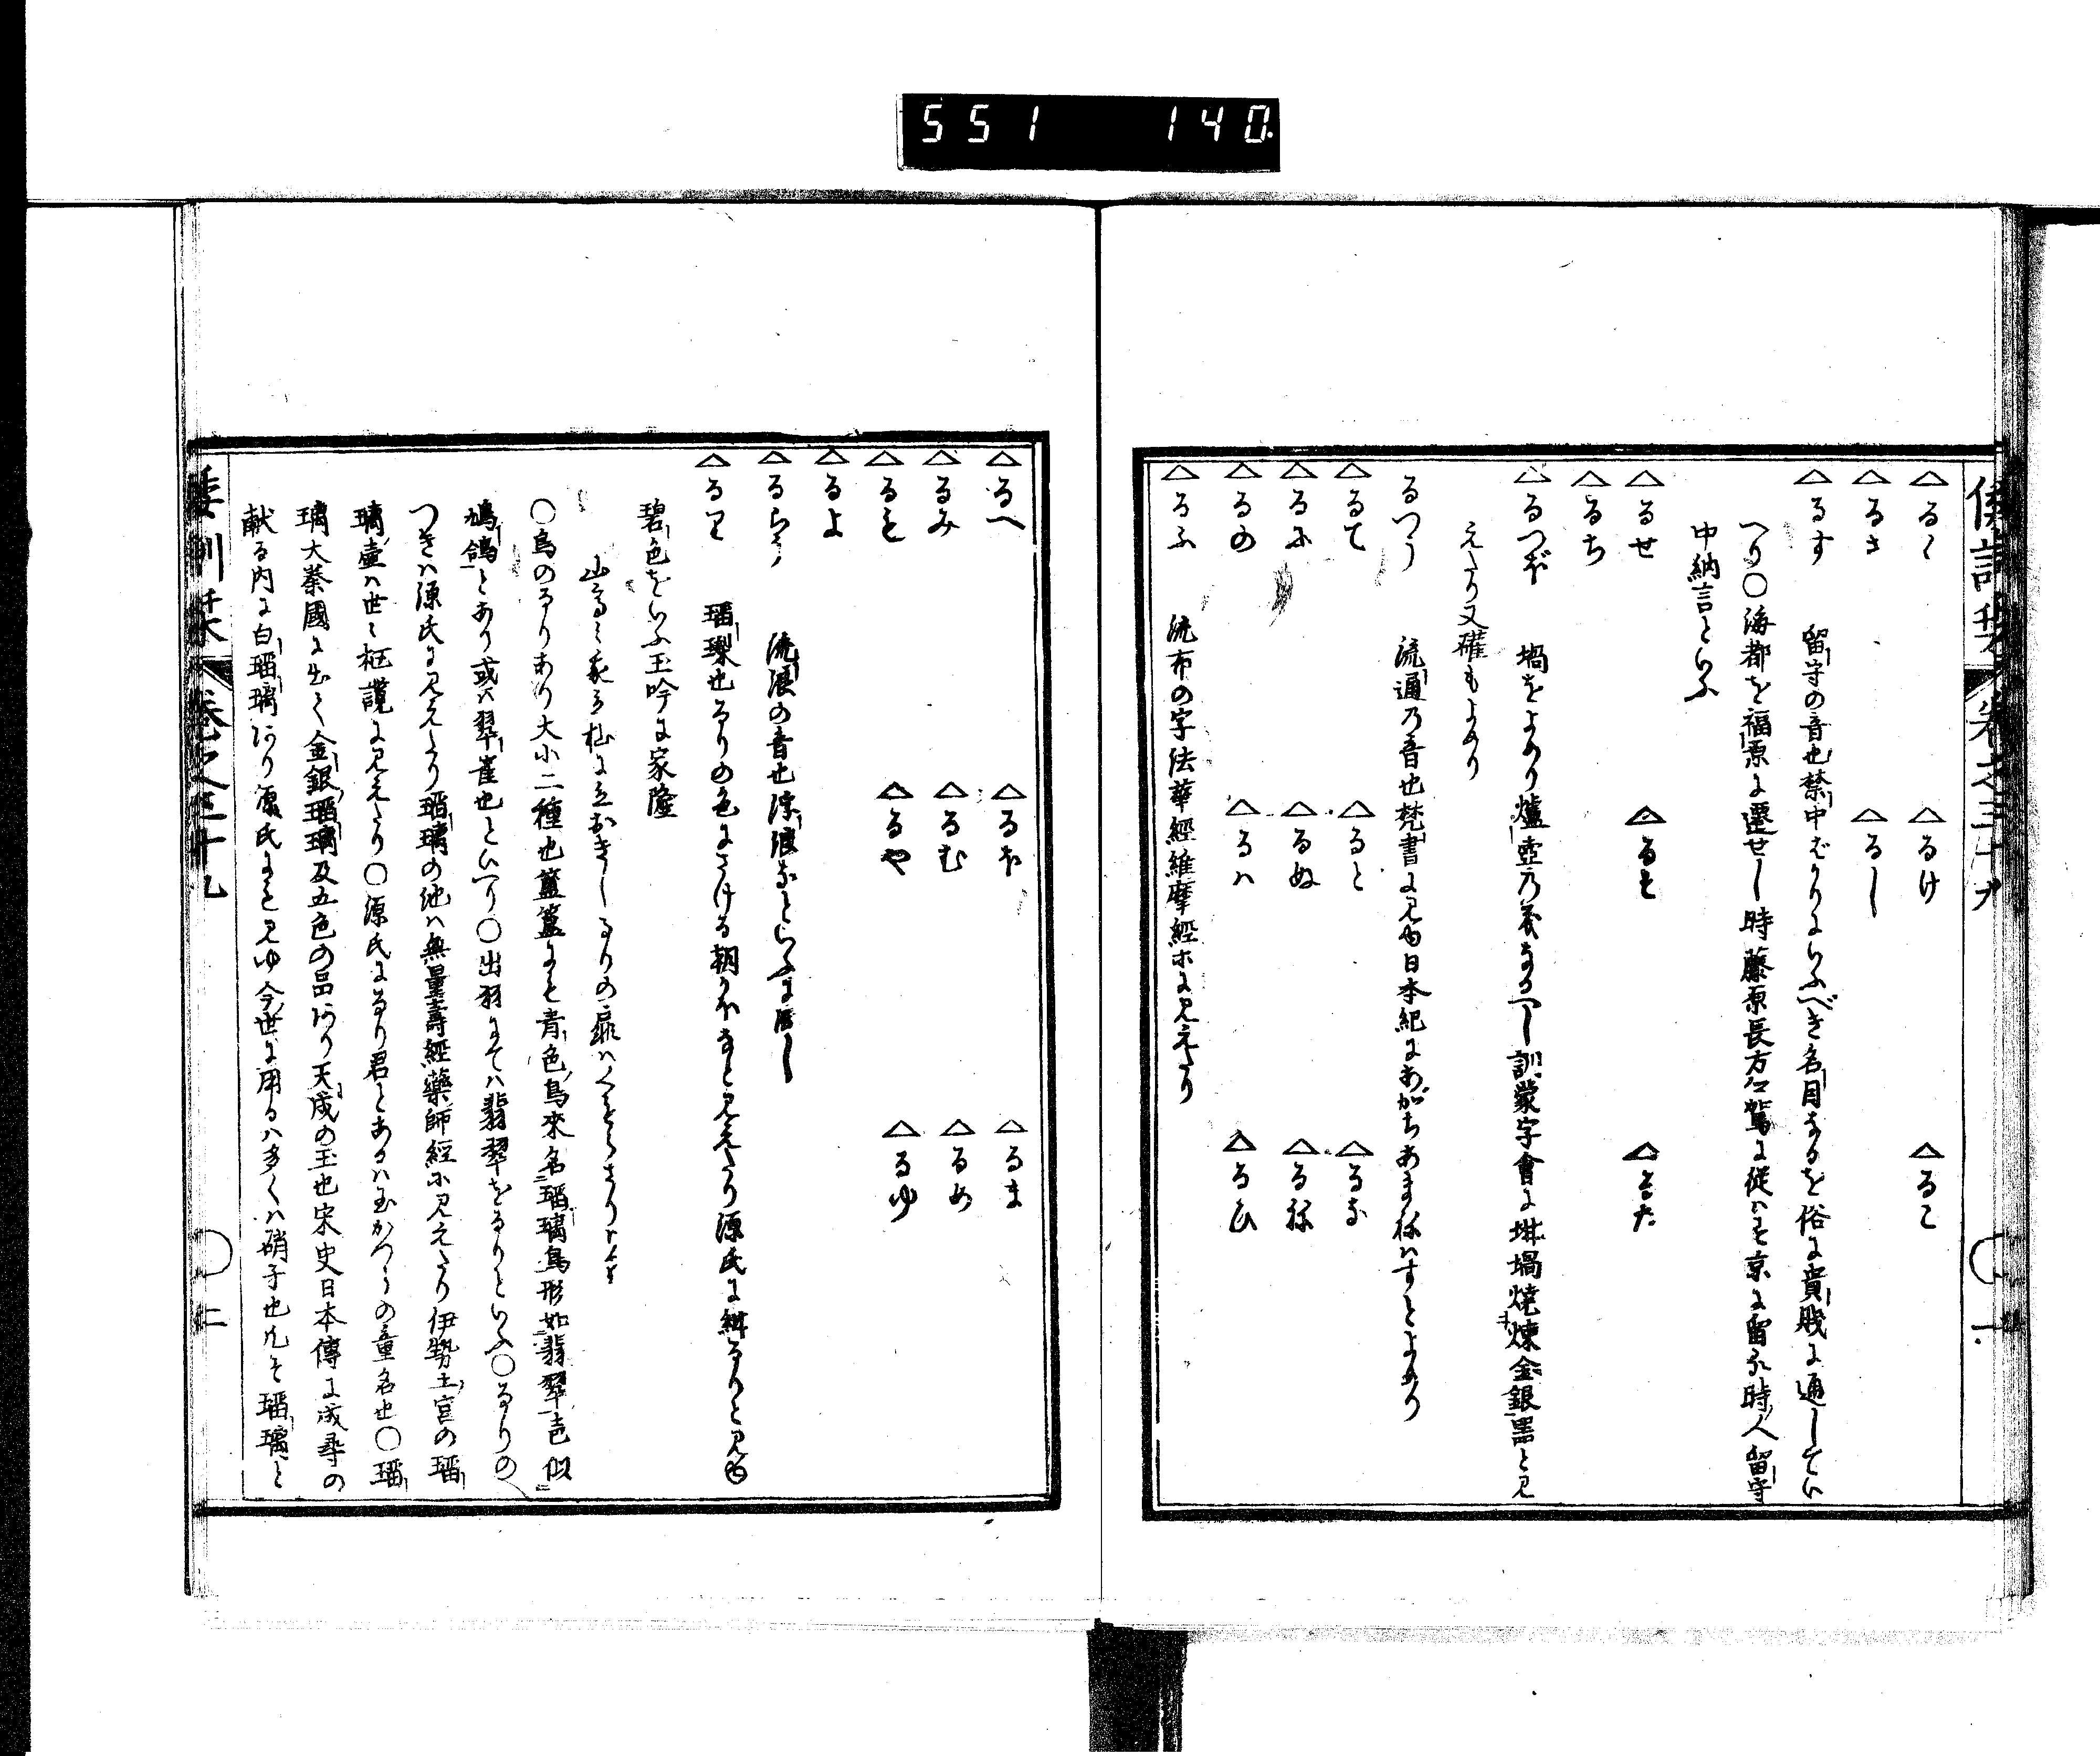 551 140
倭訓栞 卷之三十九 一
△るく △るけ △るこ
△るさ △るし
△るす 留守の音也禁中ばかりにいふべき名目なるを俗に貴賤に通してい
へり〇海都を福原に遷せし時藤原長方公駕に從はず京に留る時人留守
中納言といふ
△るせ △るそ △るた
△るち
△るつぼ 堝をよめり爐壺の義なるへし訓蒙字會に坩堝燒煉金銀器と見
えたり又䃰もよめり
るつう 流通の音也梵書に見ゆ日本紀にあがちあまねはすとよめり
△るて △ると △るな
△るに △るぬ △るね
△るの △るは △るひ
△るふ 流布の字法華經維摩經ホに見えたり
△るへ △るほ △るま
△るみ △るむ △るめ
△るも △るや △るゆ
△るよ
△るらう 流浪の音也浮浪なといふに同し
△るり 瑠璃也るりの色にさける朝かほなと見えたり源氏に紺るりと見ゆ
碧色をいふ玉吟に家隆
山 に立おきしるりの扉は
〇鳥のるりあり大小二種也簠簋にも青色鳥來名瑠璃鳥形如翡翠色似
鳩鴿とあり或は翠雀也といへり〇出羽にては翡翠をるりといふ〇るりの
つきは源氏に見えたり瑠璃の地は無量壽經藥師經ホ見えたり伊勢 宮の瑠
璃壺は世々 に見えたり〇源氏にるり君とあるは玉かつらの童名也〇瑠
璃大秦國に出て金銀瑠璃及五色の品あり天成の玉也宋史日本傳に成尋の
献る内に白瑠璃あり源氏にも見ゆ今世に用るは多くは硝子也凡そ瑠璃と
倭訓栞 卷之三十九 二